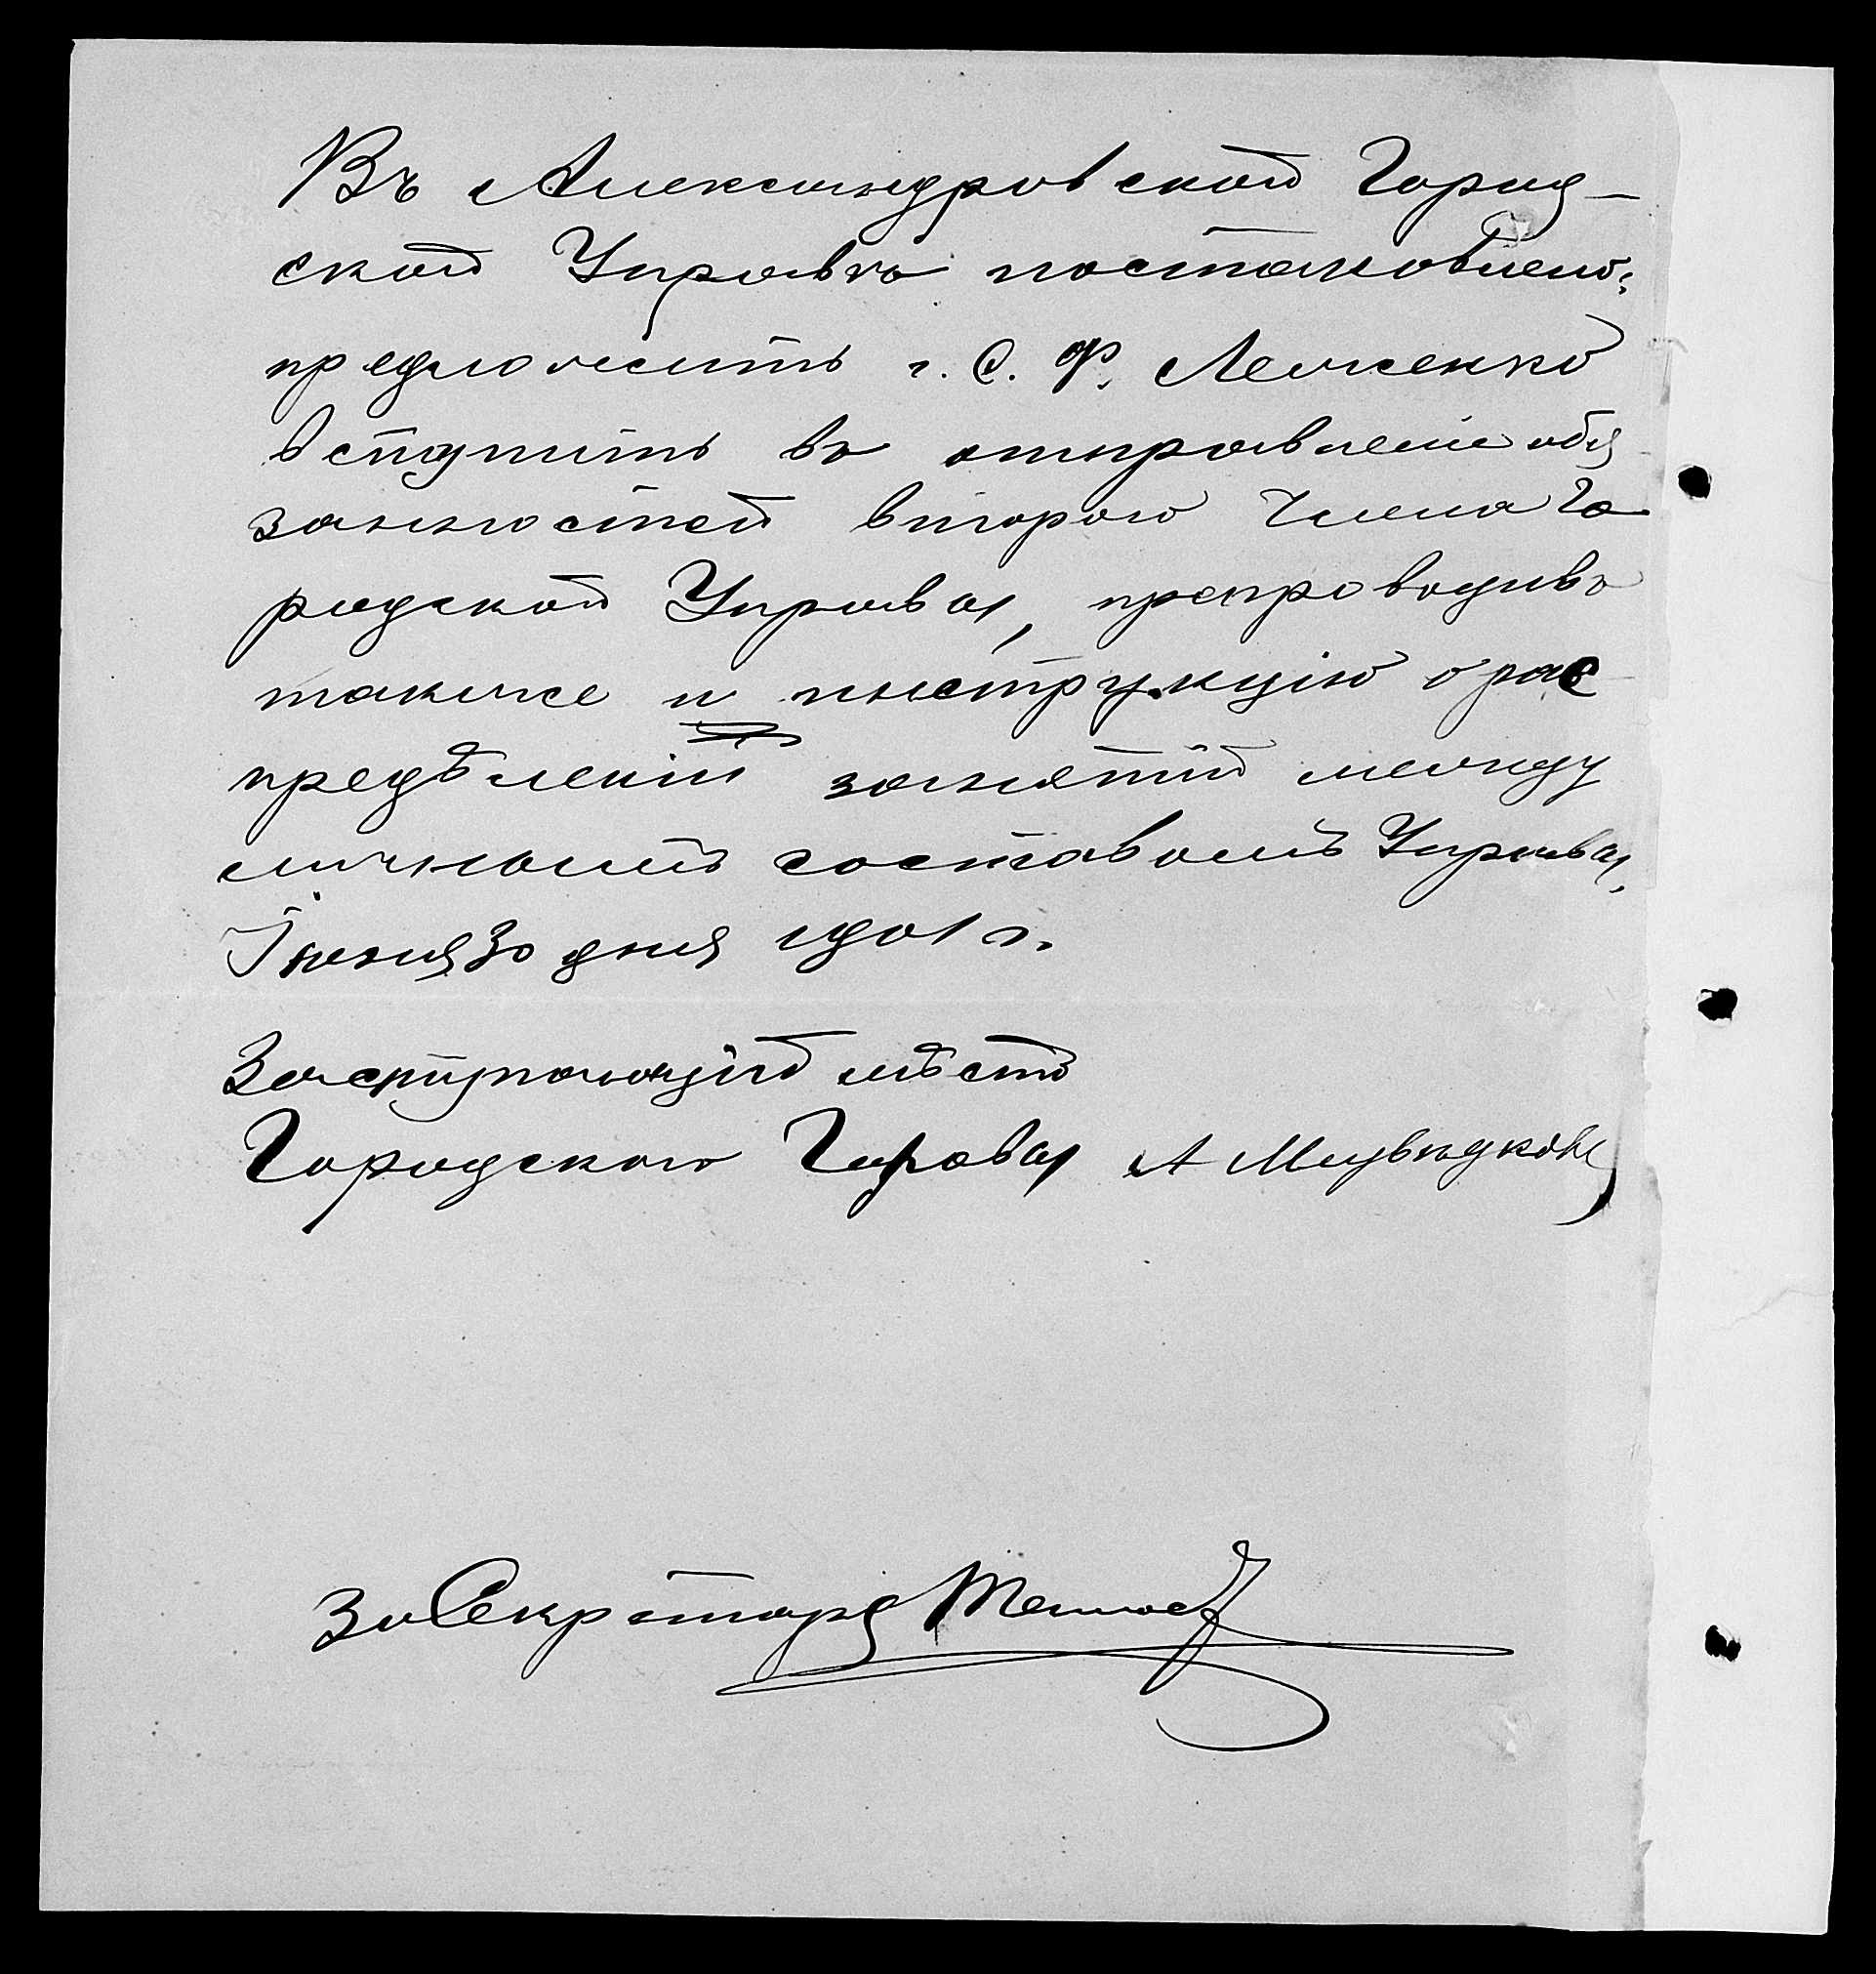 Въ Александровской Город-
ской Управѣ постановлено:
предложить г. С. Ф. Лемженко
вступить въ отправленіе обя
занностей второго Члена Го
родской Управы, препроводивъ
также и инструкцію о рас
предѣленіи занятій между
личнымъ составомъ Управы.
Іюня 30 дня 1901 г.
Заступающій мѣсто
Городского Головы А
За Секретаря